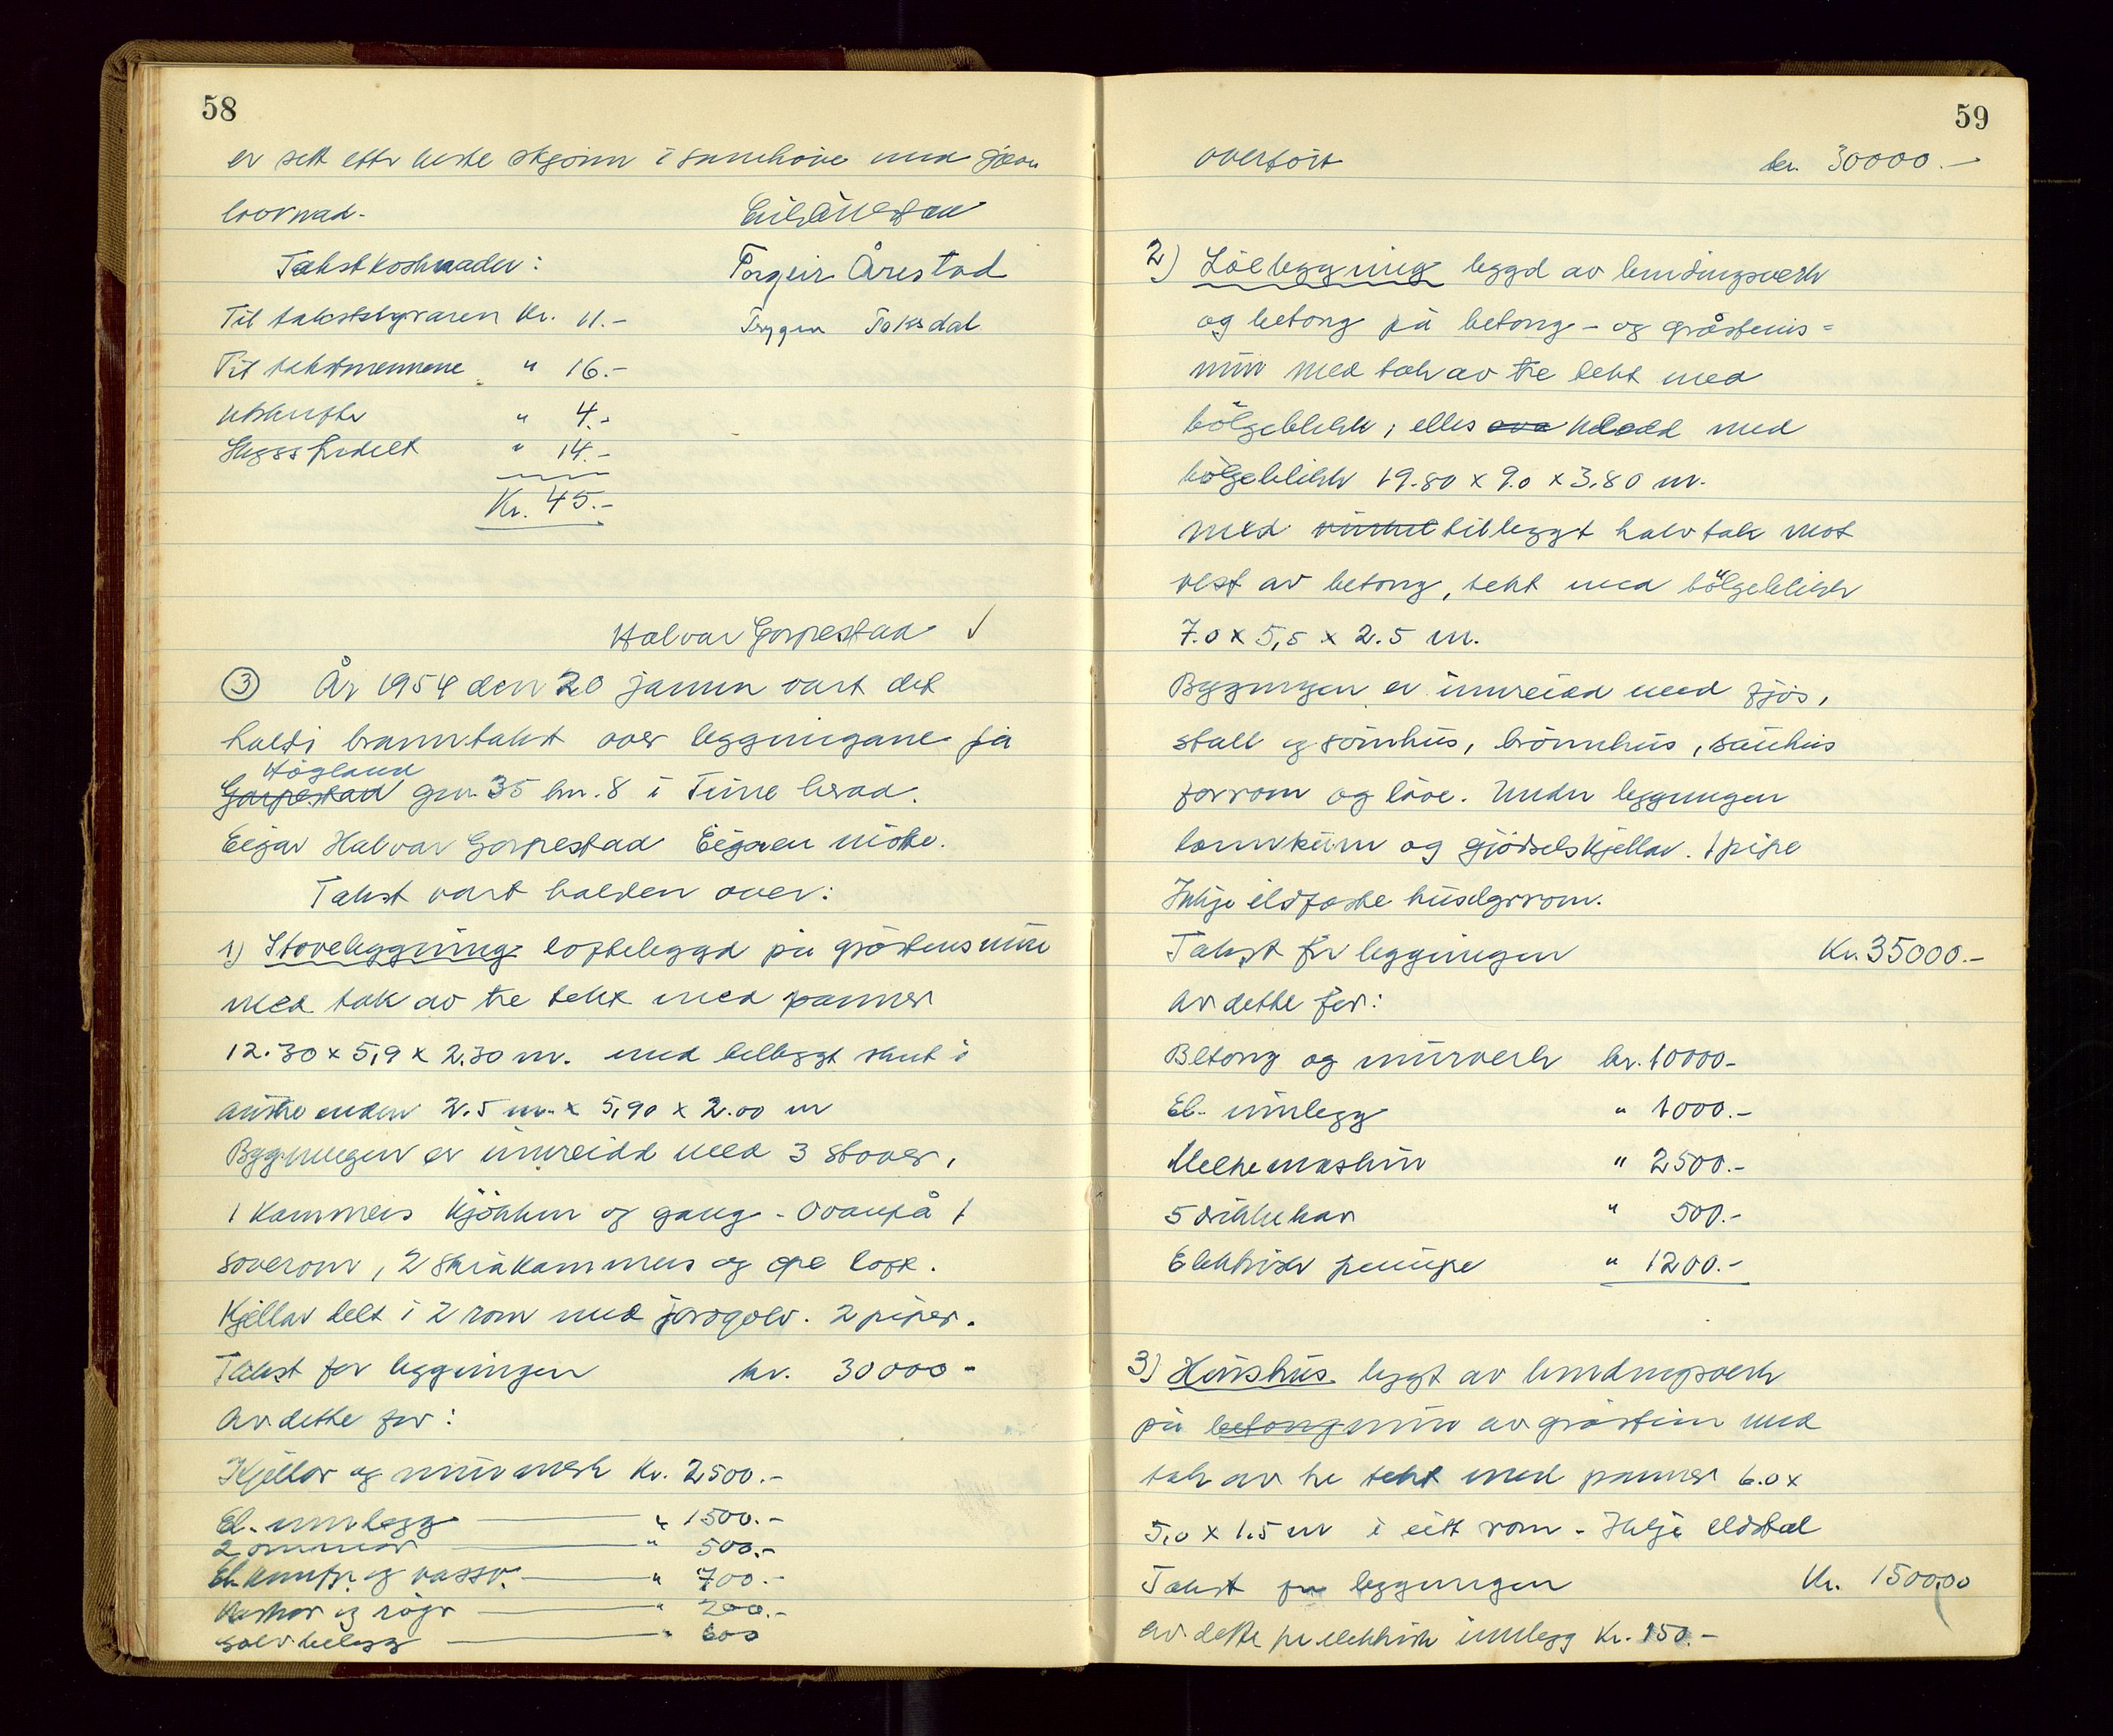 58
er sett etter beste skjønn i samhøve med jamn
lovnad.
Takstkostnader:
Torgeir Årestad
Til takststyraren Kr. 11.-
Trygve Taksdal
Til takstmennene " 16.-
Utskrifter " 4.-
Skyssfridelt " 14.-
Kr. 45.-
Halvar Garpestad ✓
3 År 1954 den 20 januar vart det
haldi branntakst over bygningane på
Högland
Garpestad gnr. 35 bnr. 8 i Time herad.
Eigar Halvar Garpestad Eigaren møtte.
Takst vart halden over:
1) Stovebygning loftebygd på gråsteinsmur
med tak av tre tekt med panner
12.30 x 5,9 x 2.30 m. med tilbygt skut i
austre enden 2.5 m. x 5,90 x 2.00 m
Bygningen er innreidd med 3 stover,
1 kammers kjökken og gang - Ovanpå 1
soverom, 2 skråkammers og ope loft.
Kjellar delt i 2 rom med jordgolv. 2 piper.
Takst for bygningen kr. 30000-
Av dette for:
Kjellar og murverk Kr. 2500.-
El. innlegg " 1500.-
2 omnar " 500.-
El. komfyr og vassv. " 700.-
Vaskar og røyr " 200.-
Golvbelegg " 600
59
Overfört kr. 30000.-
2) Löebygning bygd av bindingsverk
og betong på betong- og gråsteins-
mur med tak av tre tekt med
bölgeblikk, elles ova kledd med
bölgeblikk 19.80 x 9.0 x 3.80 m.
med tilbyggt halvtak mot
vest av betong, tekt med bölgeblikk
7.0 x 5,5 x 2.5 m.
Bygningen er innreidd med fjös,
stall og törrhus, brönnhus, sauhus
forrom og löve. Under bygningen
lannkum og gjödselskjellar. 1 pipe
Inkje eldfaste husdyrrom.
Takst for bygningen Kr. 35000.-
Av dette for:
Betong og murverk kr. 10000-
El. innlegg " 1000.-
Melkemaskin " 2500.-
5 drikkekar " 500.-
Elektrisk pumpe " 1200.-
3) Hönshus bygt av bindingsverk
på betongmur av gråstein med
tak av tre tekt med panner 6.0 x
5,0 x 1.5 m i eitt rom - Inkje eldstad
Takst for bygningen Kr. 1500,00
Av dette for elektrisk innlegg Kr. 150.-